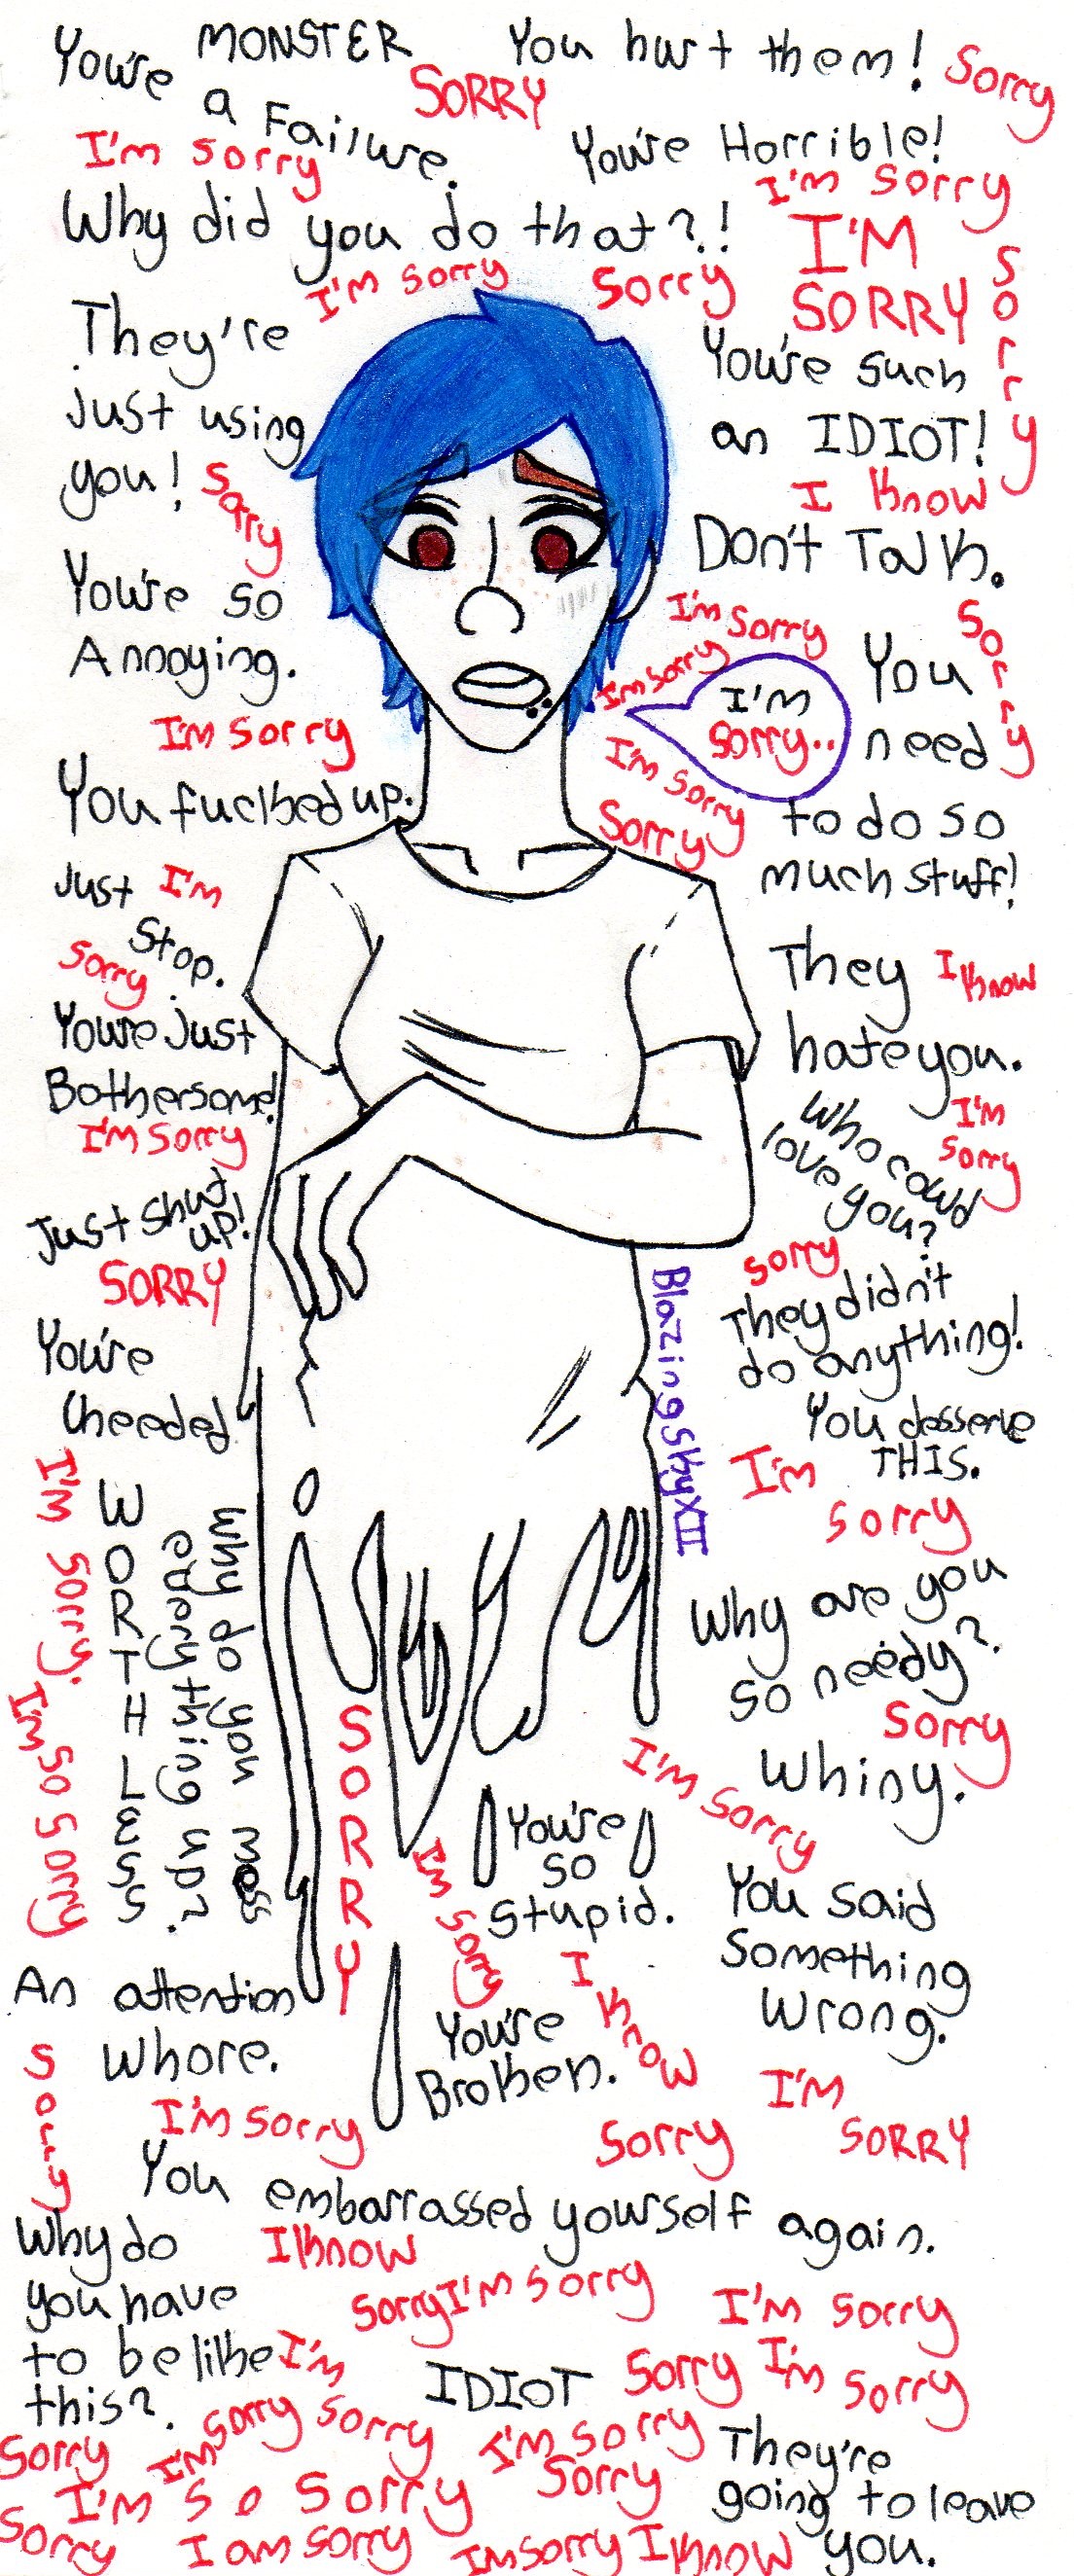 You're MONSTER You hurt them! Sorry
a Failure. SORRY
I'm sorry You're Horrible!
I'm sorry
Why did you do that?!
I'M
SORRY
Sorry
I'm sorry Sorry
They're
just using
you! Sorry
You're such
an IDIOT!
I know
Don't Talk.
You're so
Annoying.
I'm sorry
I'm sorry
I'm sorry
I'm
sorry..
I'm sorry
Sorry
Sorry
You
need
to do so
much stuff!
You fucked up.
Just I'm
Stop.
Sorry
You're just
Bothersome!
I'm sorry
They I know
hate you.
I'm
sorry
Who could
love you?
Just shut
up!
SORRY
sorry
They didn't
do anything!
You're
Uneeded
BlazingSkyXII
You desserve
THIS.
I'm
sorry
I'M sorry.
I'm so sorry
WORTHLESS
Why do you mess
everything up?
SORRY
Why are you
so needy?
Sorry
I'm sorry
Whiny.
You're
so
stupid.
I'm sorry
You said
Something
Wrong.
An attention
whore.
I know
You're
Broken.
sorry
I'm sorry
Sorry
I'M
SORRY
You embarrassed yourself again.
I know
Why do
you have
to be like
this?
Sorry I'm sorry
I'm sorry
I'm
sorry
sorry
IDIOT
Sorry
I'm sorry
Sorry
I'm
I'm sorry
Sorry
They're
going to leave
you.
I'm so sorry
Sorry
I am sorry
I'm sorry
I know